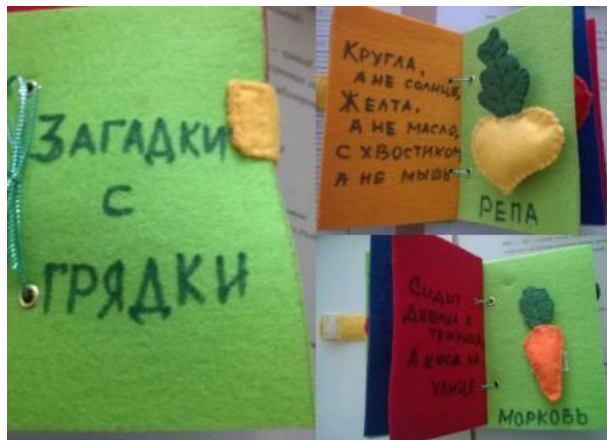 ЗАГАДКИ
С
ГРЯДКИ
КРУГЛА,
А НЕ СОЛНЦЕ,
ЖЕЛТА,
А НЕ МАСЛО,
С ХВОСТИКОМ
А НЕ МЫШЬ
РЕПА
СИДИТ
ДЕВИЦА В
ТЕМНИЦЕ,
А КОСА НА
УЛИЦЕ
МОРКОВЬ